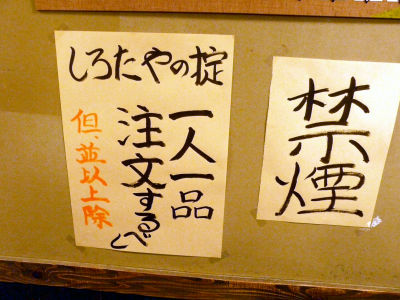 しろたやの掟
一人一品
注文するべし
但、並以上除
禁煙